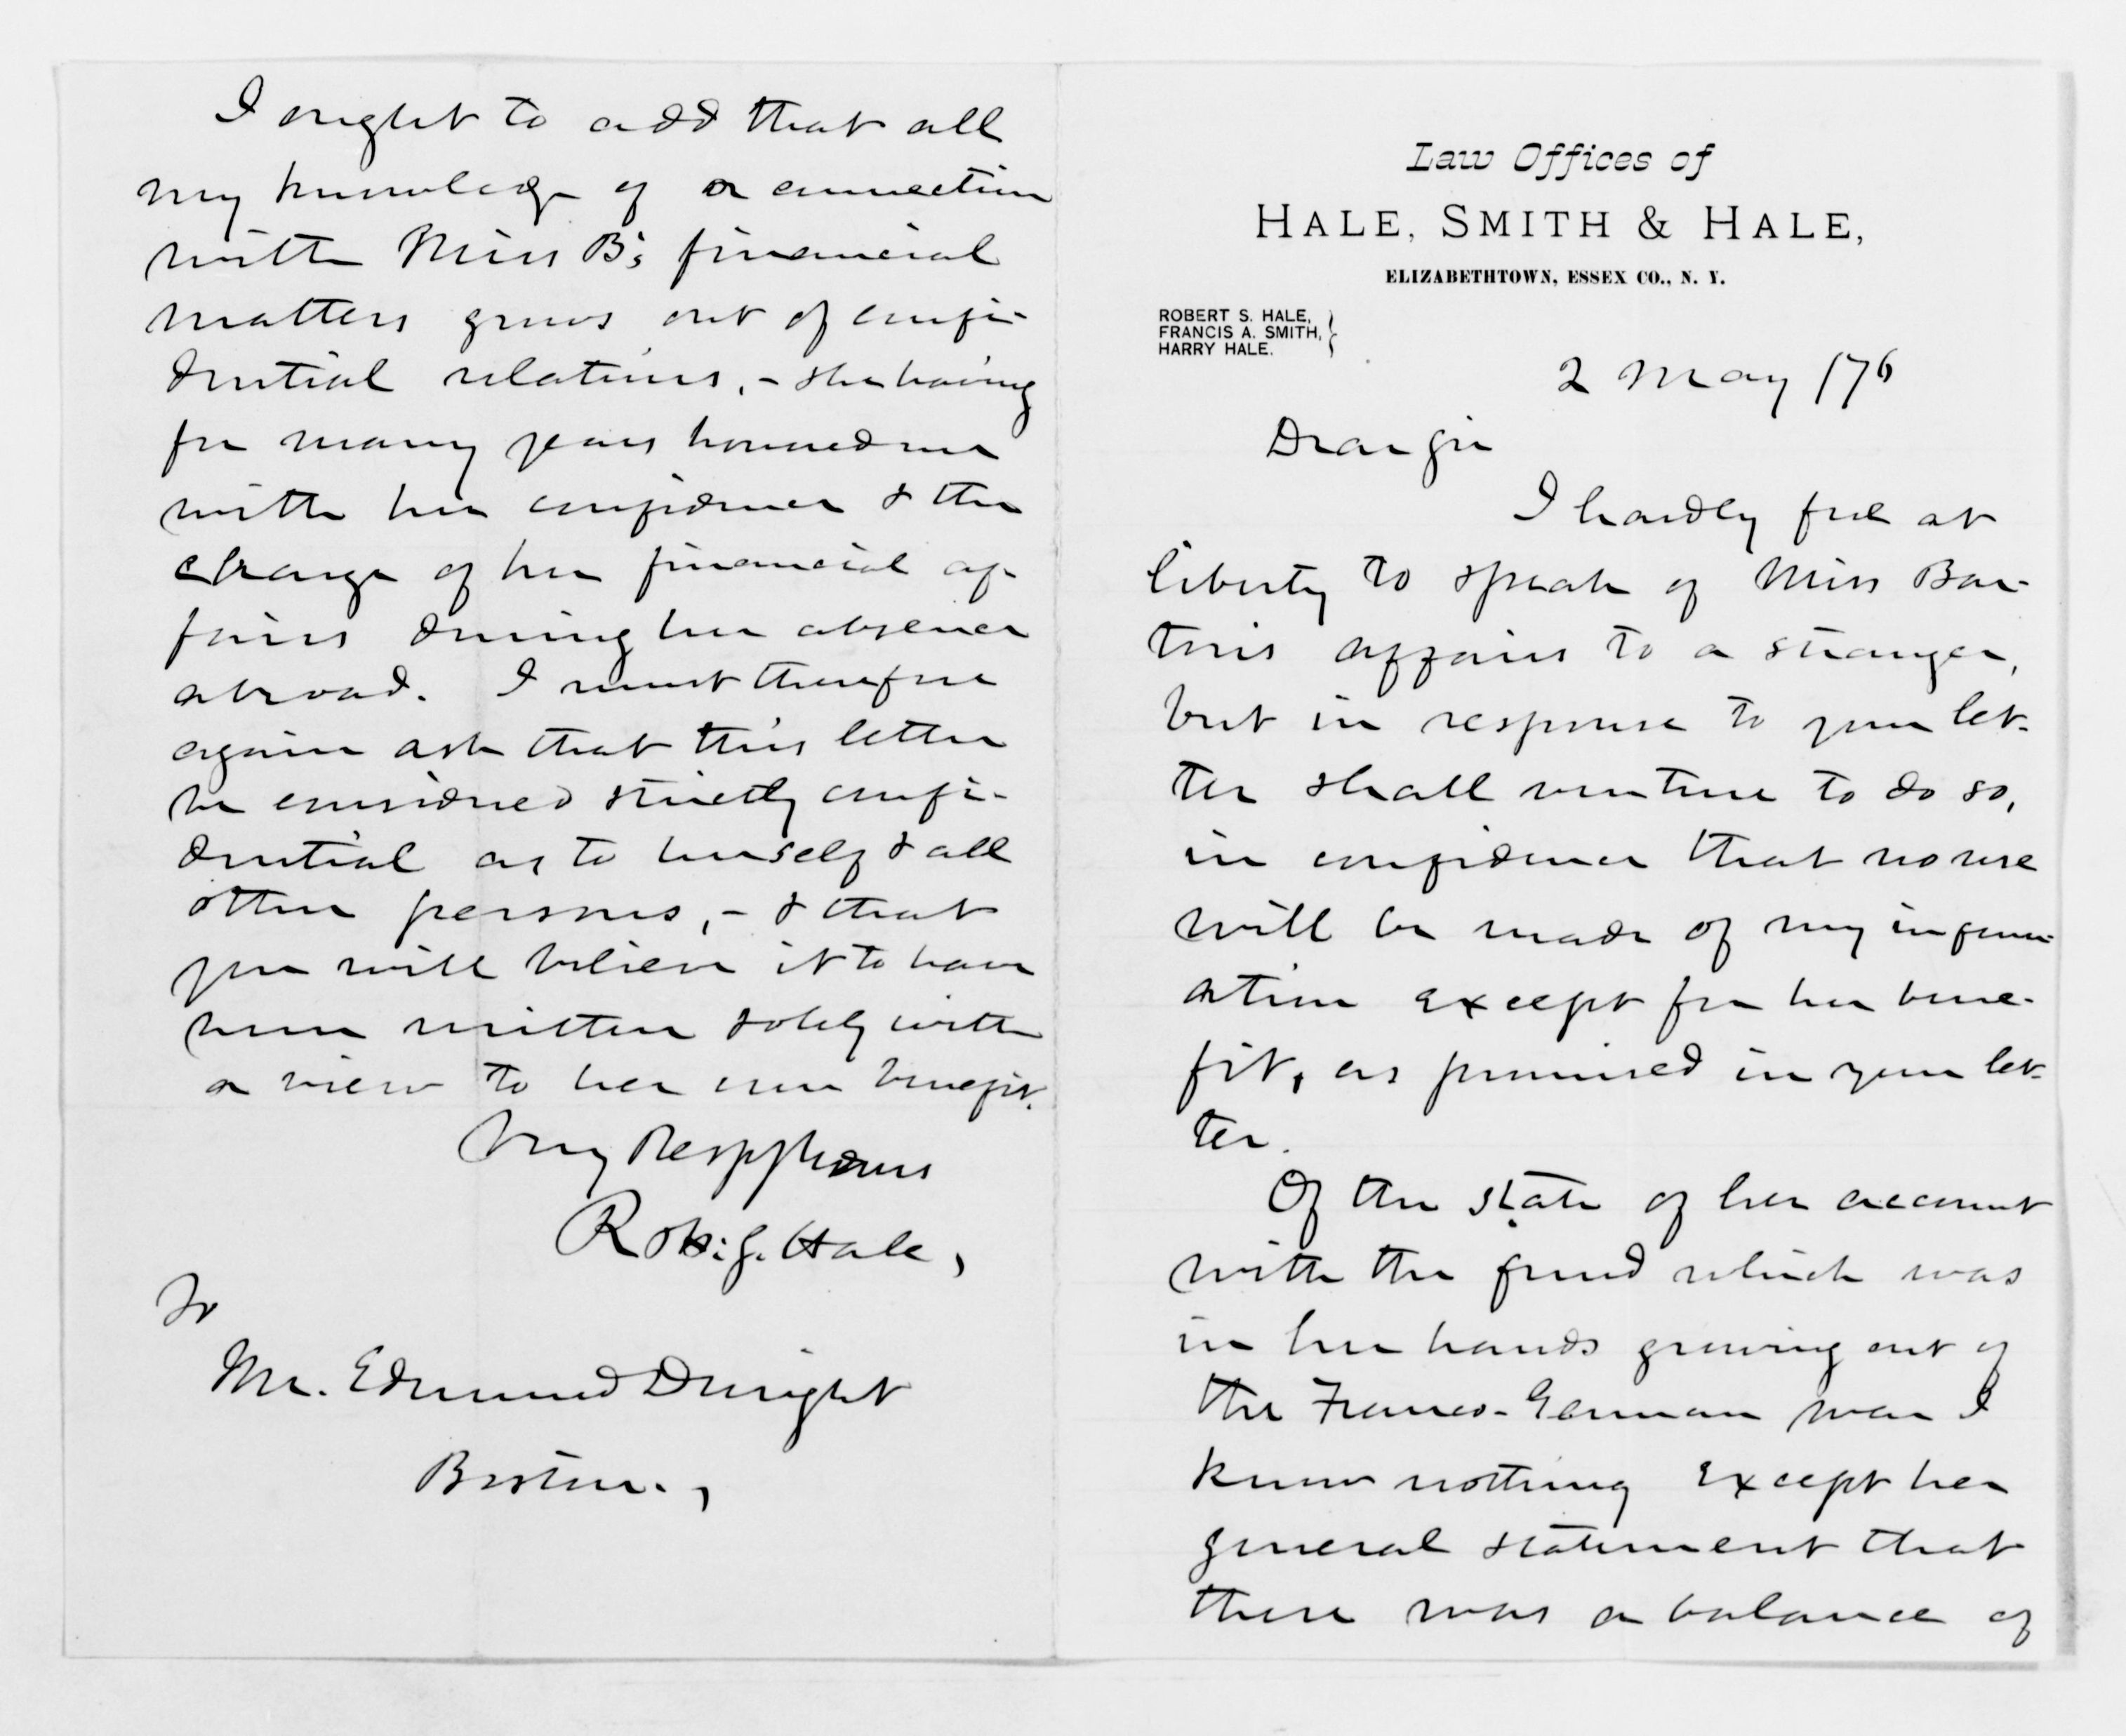 Law Offices of
HALE, SMITH & HALE,
ELIZABETHTOWN, ESSEX CO., N. Y.
ROBERT S. HALE,
FRANCIS A. SMITH,
HARRY HALE.
2 May /76
Dear Sir
I hardly feel at
liberty to speak of Miss Bar-
ton's affairs to a stranger,
but in response to your let-
ter shall venture to do so,
in confidence that no use
will be made of my inform-
ation except for her bene-
fit, as promised in your let-
ter.
Of the state of her account
with the fund which was
in her hands growing out of
the Franco-German war I
know nothing except her
general statement that
there was a balance of
I ought to add that all
my knowledge of or connection
with Miss B's financial
matters grows out of confi-
dential relations, - she having
for many years honored me
with her confidence & the
charge of her financial af-
fairs during her absence
abroad. I must therefore
again ask that this letter
be considered strictly confi-
dential as to herself & all
other persons, - & that
you will believe it to have
been written solely with
a view to her own benefit.
Very Respy yours
Robt. S. Hale,
To
Mr. Edmund Dwight
Boston.,